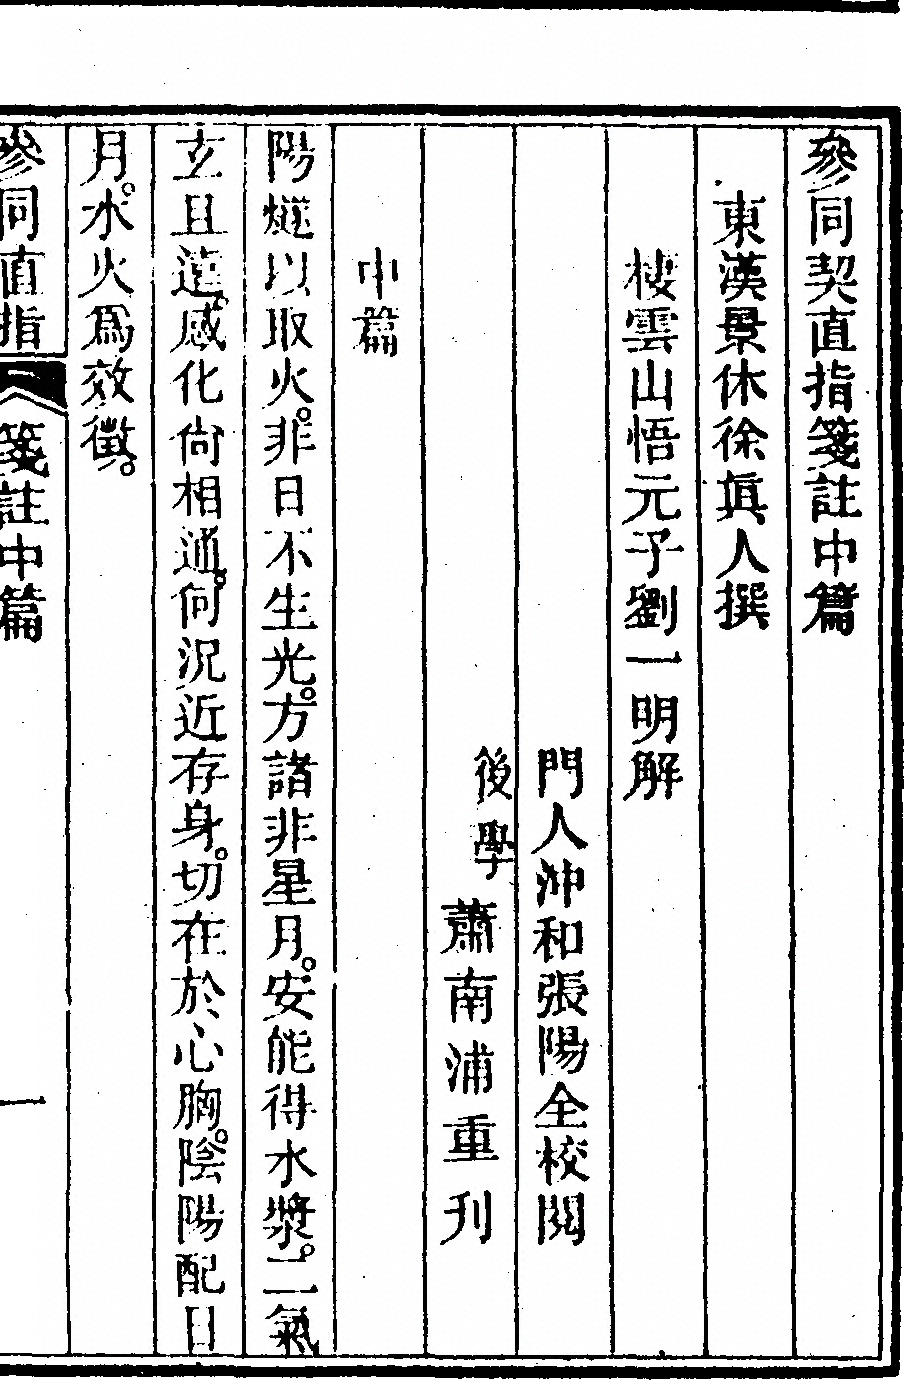 參同契直指箋註中篇
東漢景休徐眞人撰
棲雲山悟元子劉一明解
門人沖和張陽全校閱
後學蕭南浦重刋
中篇
陽燧以取火。非日不生光。方諸非星月。安能得水漿。二氣
玄且遠。感化尙相通。何況近存身。切在於心胸。陰陽配日
月。水火爲效徵。
參同直指 箋註中篇 一